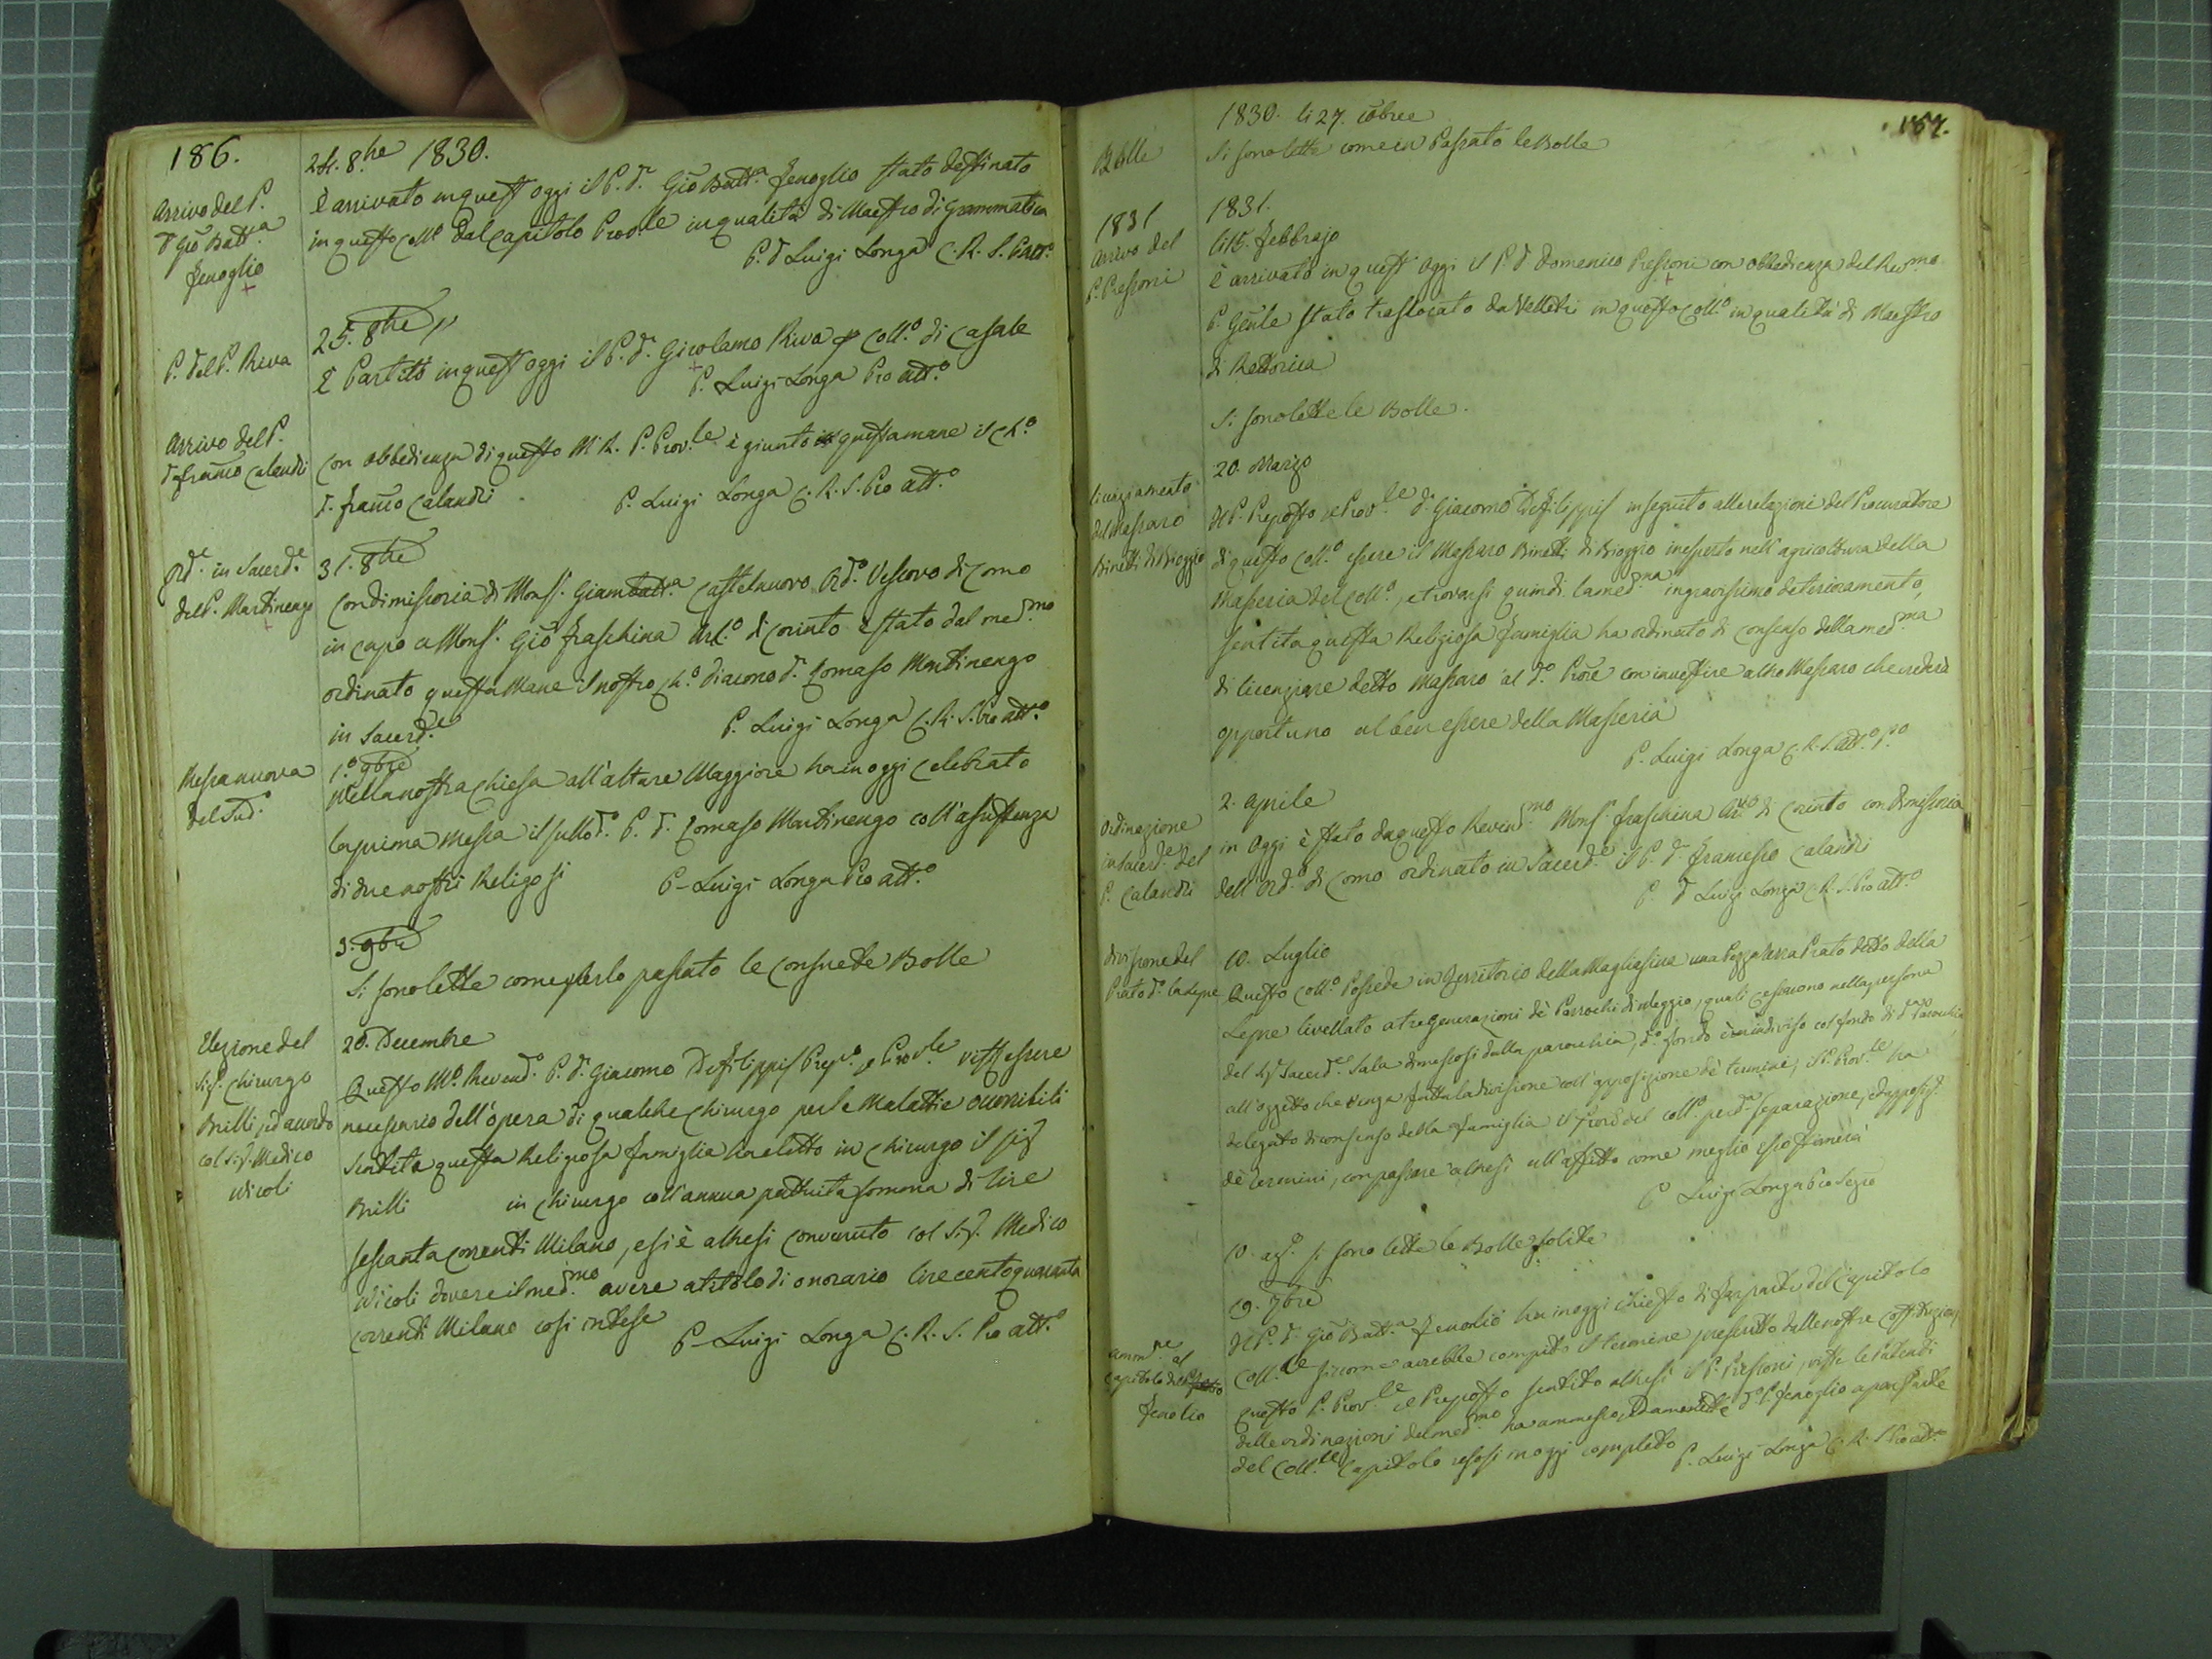 186.
24. 8bre 1830.
Arrivo del P.
D. Gio Batta
Fenoglio
È arrivato in quest'oggi il P. D. Gio Batta Fenoglio stato destinato
in questo Collo dal Capitolo Provle in qualità di Maestro di Grammatica
P. D. Luigi Longa C. R. S. Proatto
25. 8bre
P. del P. Riva
È Partito in quest'oggi il P. D. Girolamo Riva p Collo di Casale
P. Luigi Longa Pro atto
Arrivo del P.
D. Franco Calandri
Con obbedienza di questo M. R. P. Provle è giunto questa mane il Cho
D. Franco Calandri
P. Luigi Longa C. R. S. Pro atto
Orde in Sacerde
del P. Martinengo
31. 8bre
Con dimissoria di Monsr Giambatta Castelnuovo Ordo Vescovo di Como
in capo a Monsr Gio Fraschina Arco di Corinto è stato dal medmo
ordinato questa Mane il nostro Cho diacono D. Tomaso Martinengo
in Sacerde
P. Luigi Longa C. R. S. Pro atto
1o 9bre
Messa nuova
del Sudo
Nella nostra Chiesa all'altare Maggiore ha in oggi celebrato
la prima Messa il sullodo P. D. Tomaso Martinengo coll'assistenza
di due nostri Religosi
P. Luigi Longa Pro atto
3. 9bre
Si sono lette come per lo passato le consuete Bolle
20. Decembre
Elezione del
Sigr Chirurgo
Brilli, ed acordo
col Sigr Medico
Nicoli
Questo Mo Revendo P. D. Giacomo Defilippis Prepo e Provle visto essere
necessario dell'opera di qualche Chirurgo per le Malattie ocorribili
Sentita questa Religiosa famiglia ha eletto in Chirurgo il Sigr
Brilli in Chirurgo coll'annua pattuita somma di lire
sessanta correnti Milano, e si è altresì convenuto col Sigr Medico
Nicoli dovere il medmo avere a titolo di onorario lire cento quaranta
correnti Milano così intese
P. Luigi Longa C. R. S. Pro atto
187.
1830. li 27. Xbree
Bolle
Si sono lette come in Passato le Bolle
1831
1831.
Arrivo del
P. Pressoni
li 15. Febbrajo
È arrivato in quest'Oggi il P. D. Domenico Pressoni con obbedienza del Revmo
P. Genle stato traslocato da Velletri in questo Collo in qualità di Maestro
di Rettorica
Si sono lette le Bolle.
20. Marzo
Licenziamento
del Massaro
Binetti di Bioggio
Il P. Preposto e Provle D. Giacomo Defilippis in seguito alle relazioni del Procuratore
di questo Collo essere il Massaro Binetti di Bioggio inesperto nell'agricoltura della
Masseria del Collo, e trovarsi quindi la medma in gravissimo deterioramento,
sentita questa Religiosa famiglia ha ordinato di consenso della medma
di licenziare detto Massaro al do Prore con investire altro Massaro che crederà
opportuno al ben essere della Masseria
P. Luigi Longa C. R. S. atto po
2. Aprile
Ordinazione
in Sacerde del
P. Calandri
in Oggi è stato da questo Revendmo Monsr Fraschina Arco di Corinto con dimissoria
dell'Ordo di Como ordinato in Sacerde il P. D. Francesco Calandri
P. D Luigi Longa C. R. S. Pro atto
10. Luglio
Divisione del
Prato do la Lepre
Questo Collo Possede in Territorio della Magliasina una Pezza terra Prato detto della
Lepre livellato a tre generazioni de' Parrochi di Neggio, quali cessarono nella persona
del Sigr Sacerde Sala dimessosi dalla parochia, do fondo è indiviso col fondo di da Parochia
all'oggetto che venga fatta la divisione coll'apposizione de' termini, il P. Provle ha
delegato di consenso della famiglia il Prore del Collo per da separazione, ed apposize
de' termini, con passare altresì all'affitto come meglio esso stimerà
P. Luigi Longa Pro Segrio
10. ago Si sono lette le Bolle solite
19. 7bre
Ammne
al
Capitolo del P.
Fenolio
Il P. D. Gio Batta Fenolio ha in oggi chiesto di far parte del Capitolo
Collle siccome avrebbe compito il termine prescritto dalle nostre Costituzioni
questo P. Provle e Preposto sentito altresì il P. Pressoni, viste le Patenti
delle ordinazioni del medmo ha ammesso, ed ammette do P. Fenoglio a parte
del Collle Capitolo resosi in oggi completo
P. Luigi Longa C. R. S. Pro atto